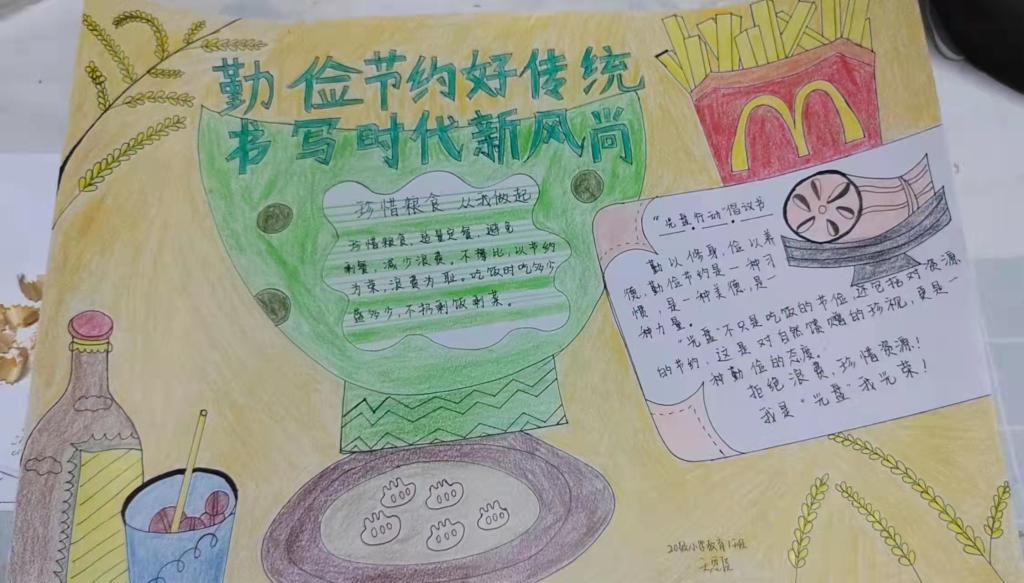 勤俭节约好传统
书写时代新风尚
珍惜粮食 从我做起
珍惜粮食，适量定餐，避免
剩餐，减少浪费，不攀比，以节约
为荣，浪费为耻。吃饭时吃多少
盛多少，不扔剩饭剩菜。
“光盘行动”倡议书
勤以修身，俭以养
德，勤俭节约是一种习
惯，是一种美德，是一
种力量。
“光盘”不只是吃饭的节俭 还包括对资源
的节约，这是对自然馈赠的珍视，更是一
种勤俭的态度。
拒绝浪费，珍惜资源！
我是“光盘”我光荣！
20级小学教育1班